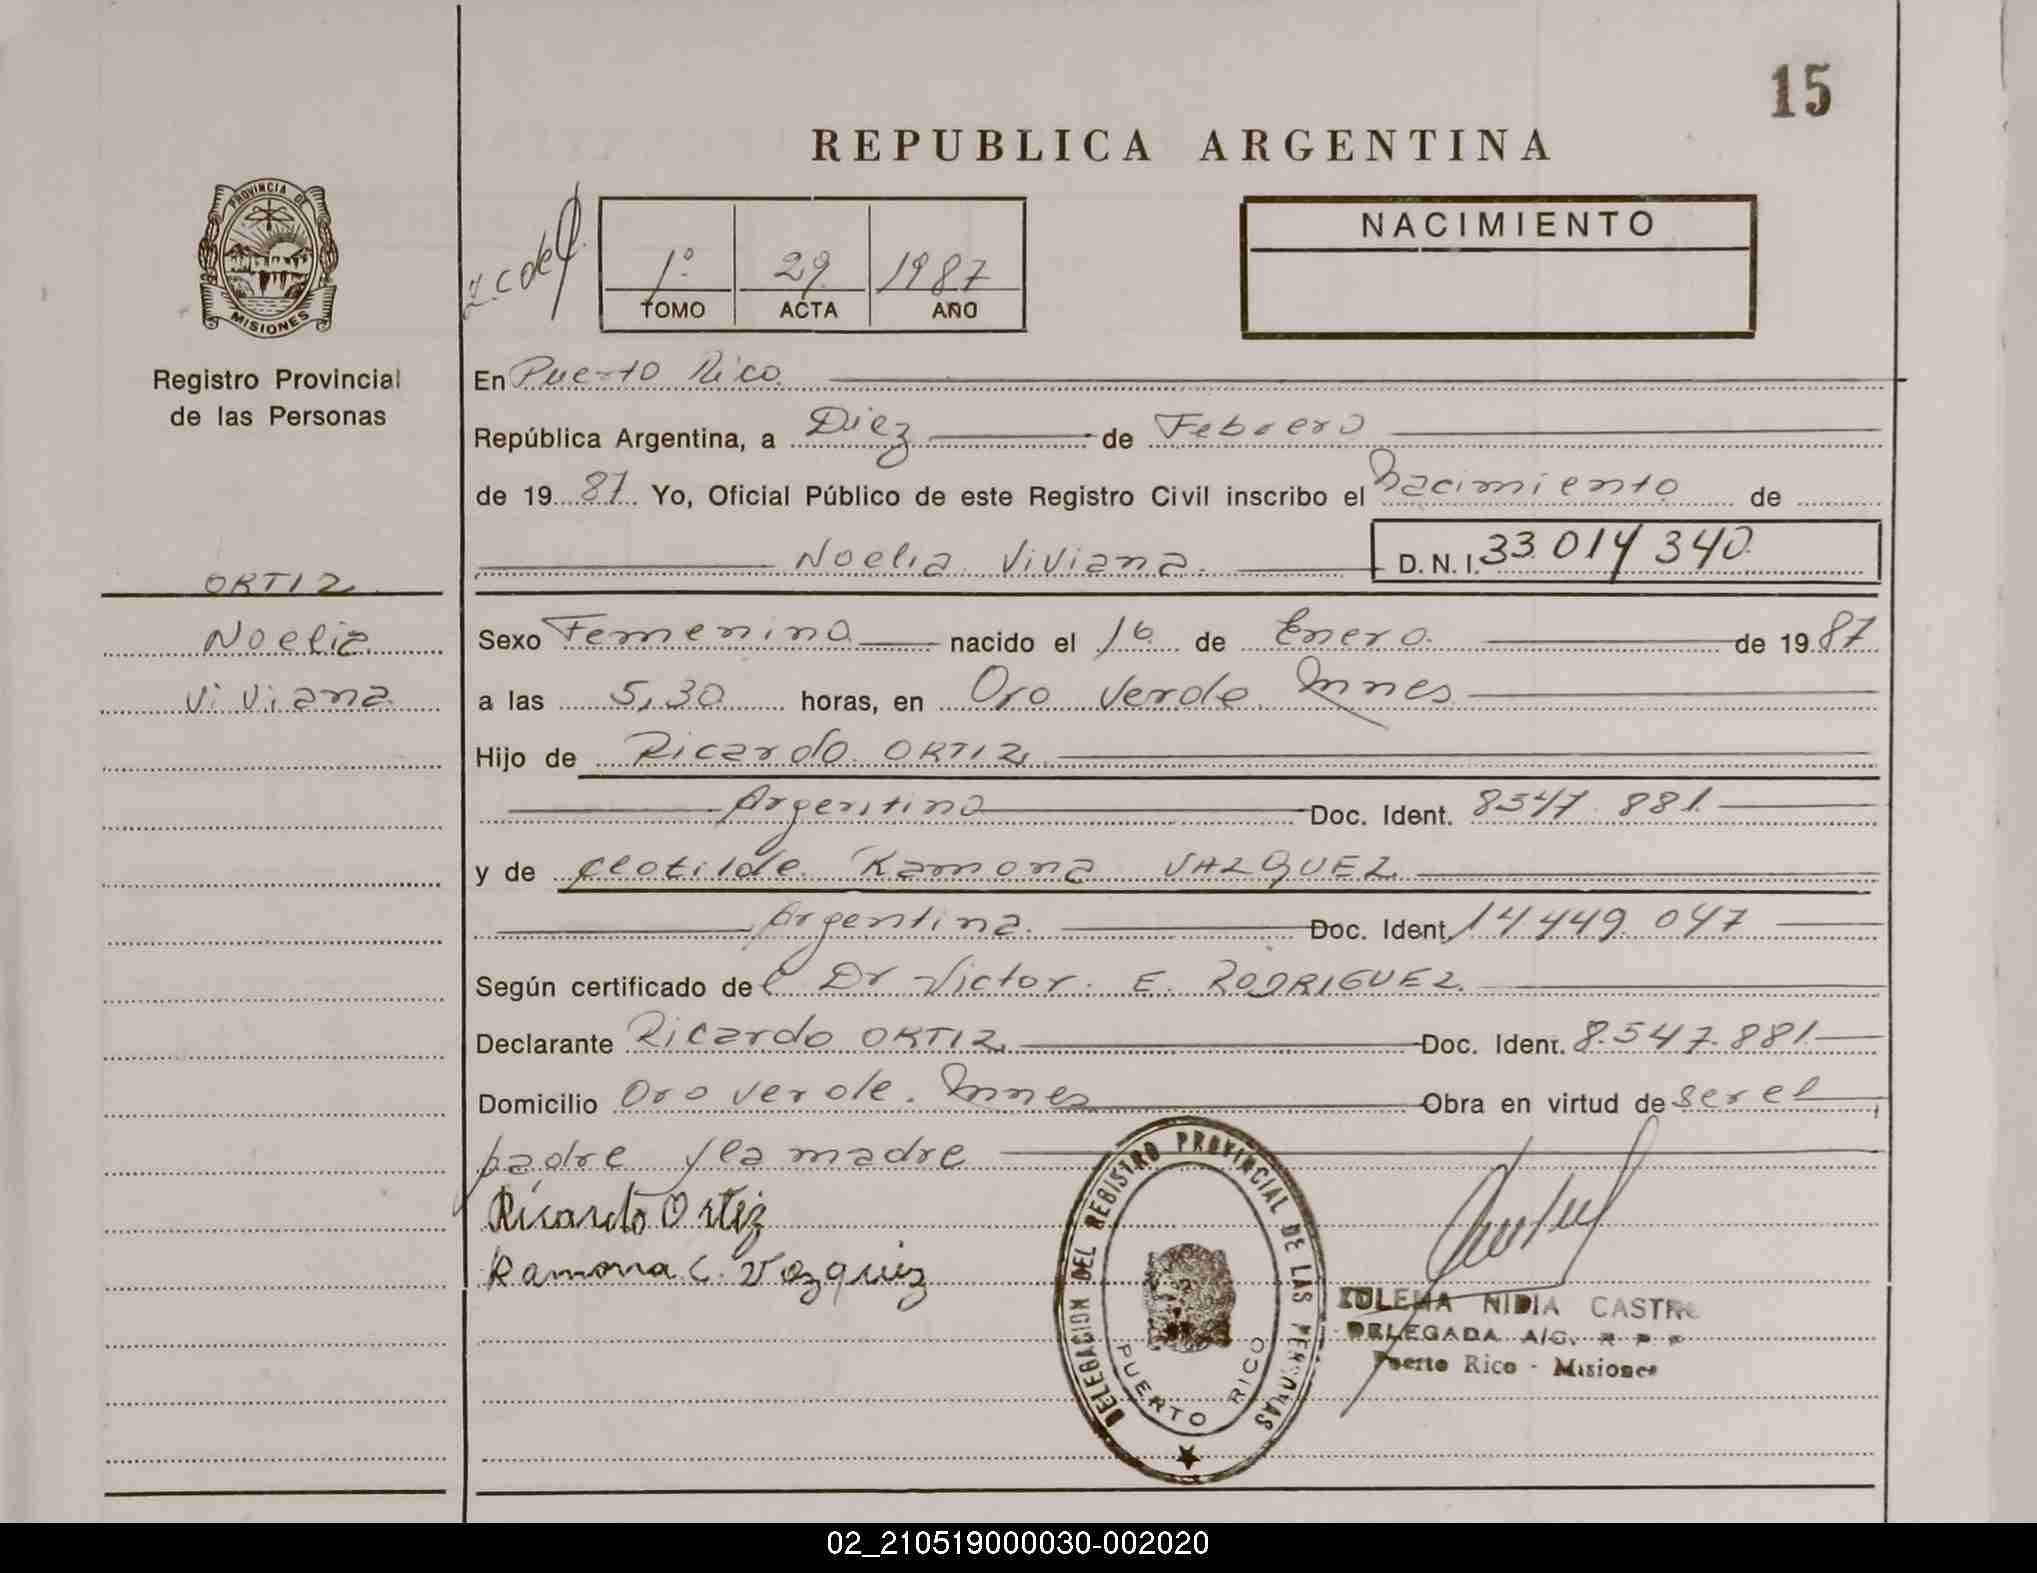 15
REPUBLICA ARGENTINA
PROVINCIA DE
MISIONES
Registro Provincial
de las Personas
1º 29 1987
TOMO ACTA AÑO
NACIMIENTO
En Puerto Rico
República Argentina, a Diez de Febrero
de 19 87 Yo, Oficial Público de este Registro Civil inscribo el Nacimiento de
Noelia Viviana D. N. I. 33 014 340
ORTIZ
Noelia
Viviana
Sexo Femenino nacido el 16 de Enero de 19 87
a las 5,30 horas, en Oro Verde Mnes
Hijo de Ricardo ORTIZ
Argentino Doc. Ident. 8547 881
y de Clotilde Ramona VAZQUEZ
Argentina Doc. Ident. 14 449 047
Según certificado del Dr Victor E. RODRIGUEZ
Declarante Ricardo ORTIZ Doc. Ident. 8.547.881
Domicilio Oro Verde. Mnes Obra en virtud de ser el
padre y la madre
Ricardo Ortiz
Ramona C. Vazquez
DELEGACION DEL REGISTRO PROVINCIAL DE LAS PERSONAS
PUERTO RICO
ZULEMA NIDIA CASTRO
DELEGADA A/C. R P P
Puerto Rico - Misiones
02_210519000030-002020